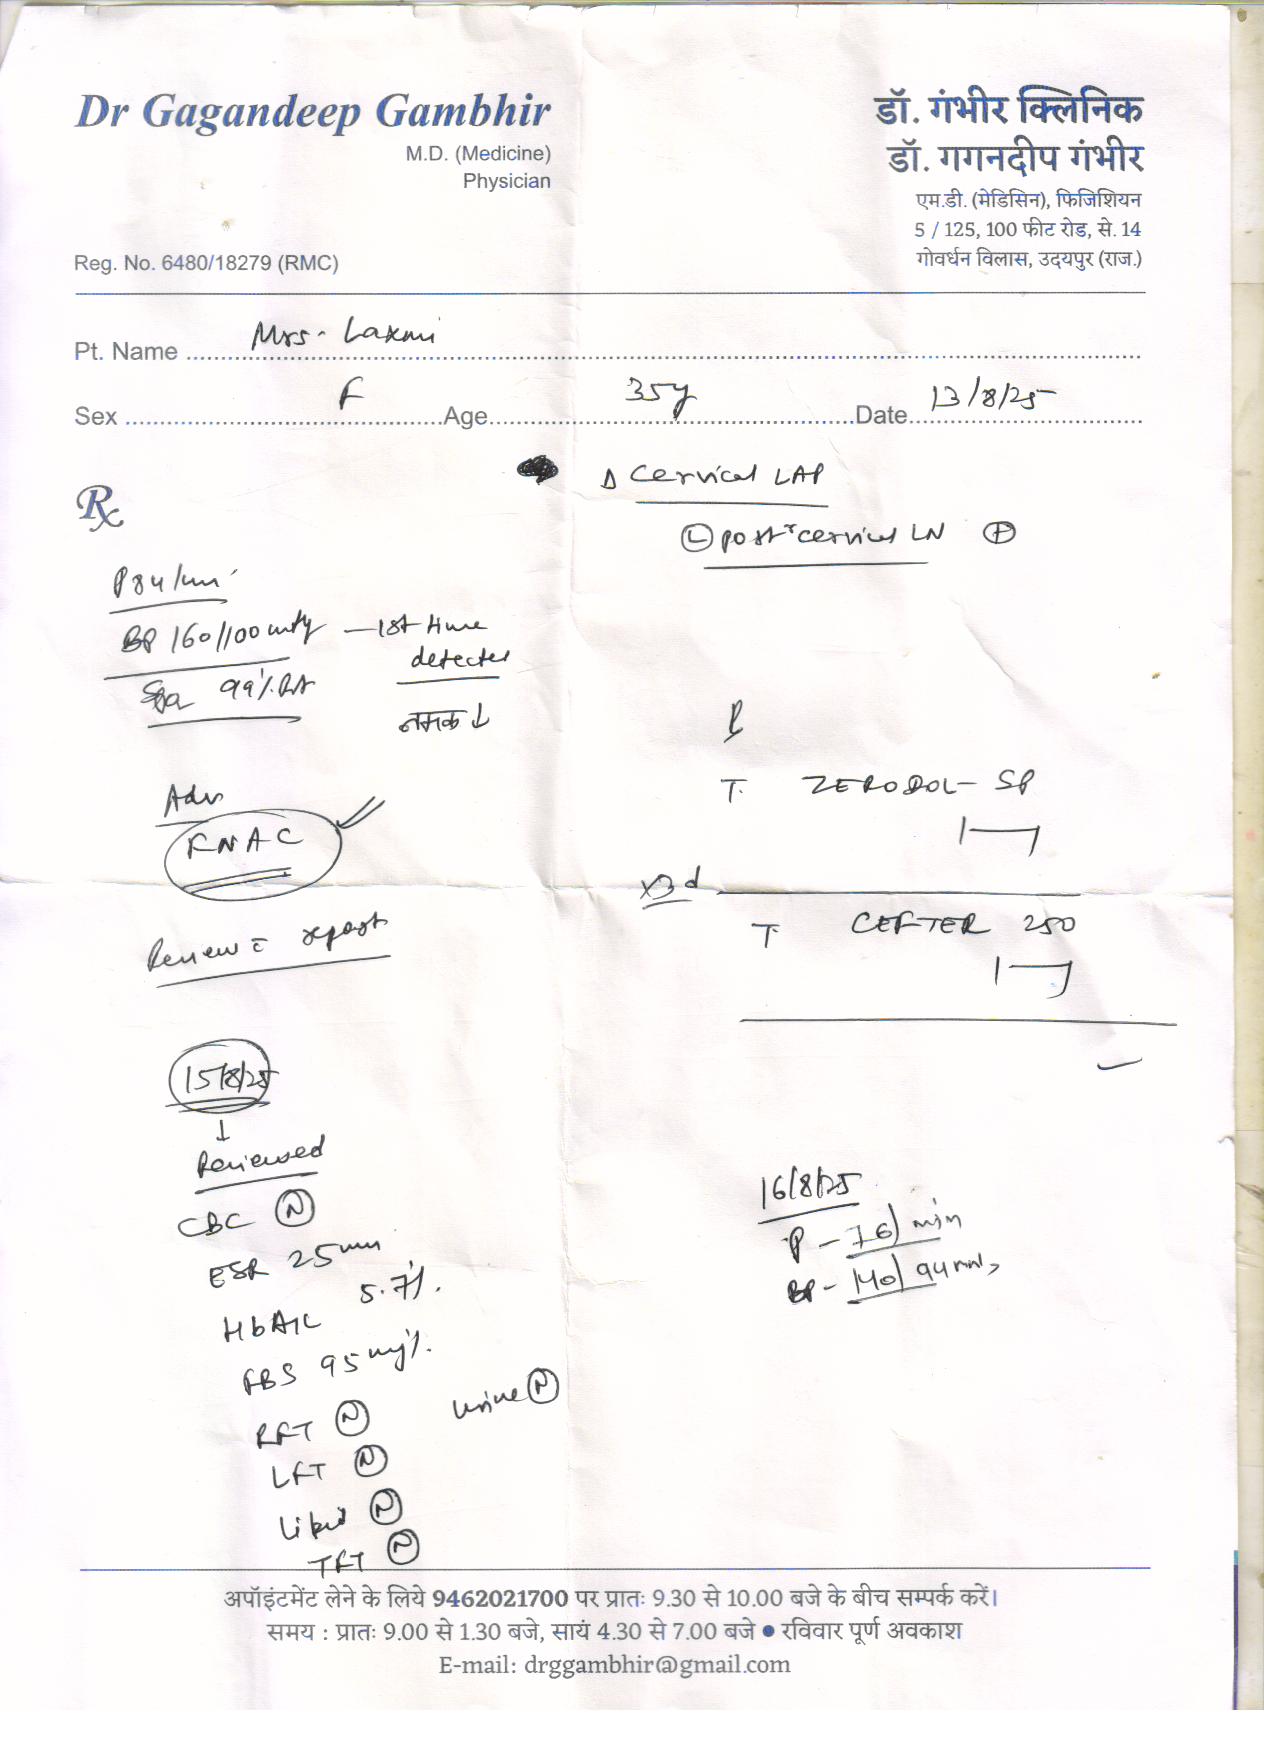 Dr Gagandeep Gambhir
M.D. (Medicine)
Physician
Reg. No. 6480/18279 (RMC)
डॉ. गंभीर क्लिनिक
डॉ. गगनदीप गंभीर
एम.डी. (मेडिसिन), फिजिशियन
5 / 125, 100 फीट रोड, से. 14
गोवर्धन विलास, उदयपुर (राज.)
Pt. Name Mrs. Laxmi
Sex F Age 35y Date 13/8/25
Rx
Δ Cervical LAP
(L) post cervical LN (+)
P 84/min
BP 160/100 mmHg — 1st time
detected
99% RA
नमक ↓
Adv
FNAC
Review c report
T. ZERODOL-SP
1—1
x3d
T. CEFTER 250
1—1
15/8/25
↓
Reviewed
CBC (N)
ESR 25 mm
HbA1c 5.7%
FBS 95 mg%
RFT (N)
Urine (N)
LFT (N)
Lipid (N)
TFT (N)
16/8/25
P - 76/min
BP - 140/94 mm
अपॉइंटमेंट लेने के लिये 9462021700 पर प्रातः 9.30 से 10.00 बजे के बीच सम्पर्क करें।
समय : प्रातः 9.00 से 1.30 बजे, सायं 4.30 से 7.00 बजे ● रविवार पूर्ण अवकाश
E-mail: drggambhir@gmail.com